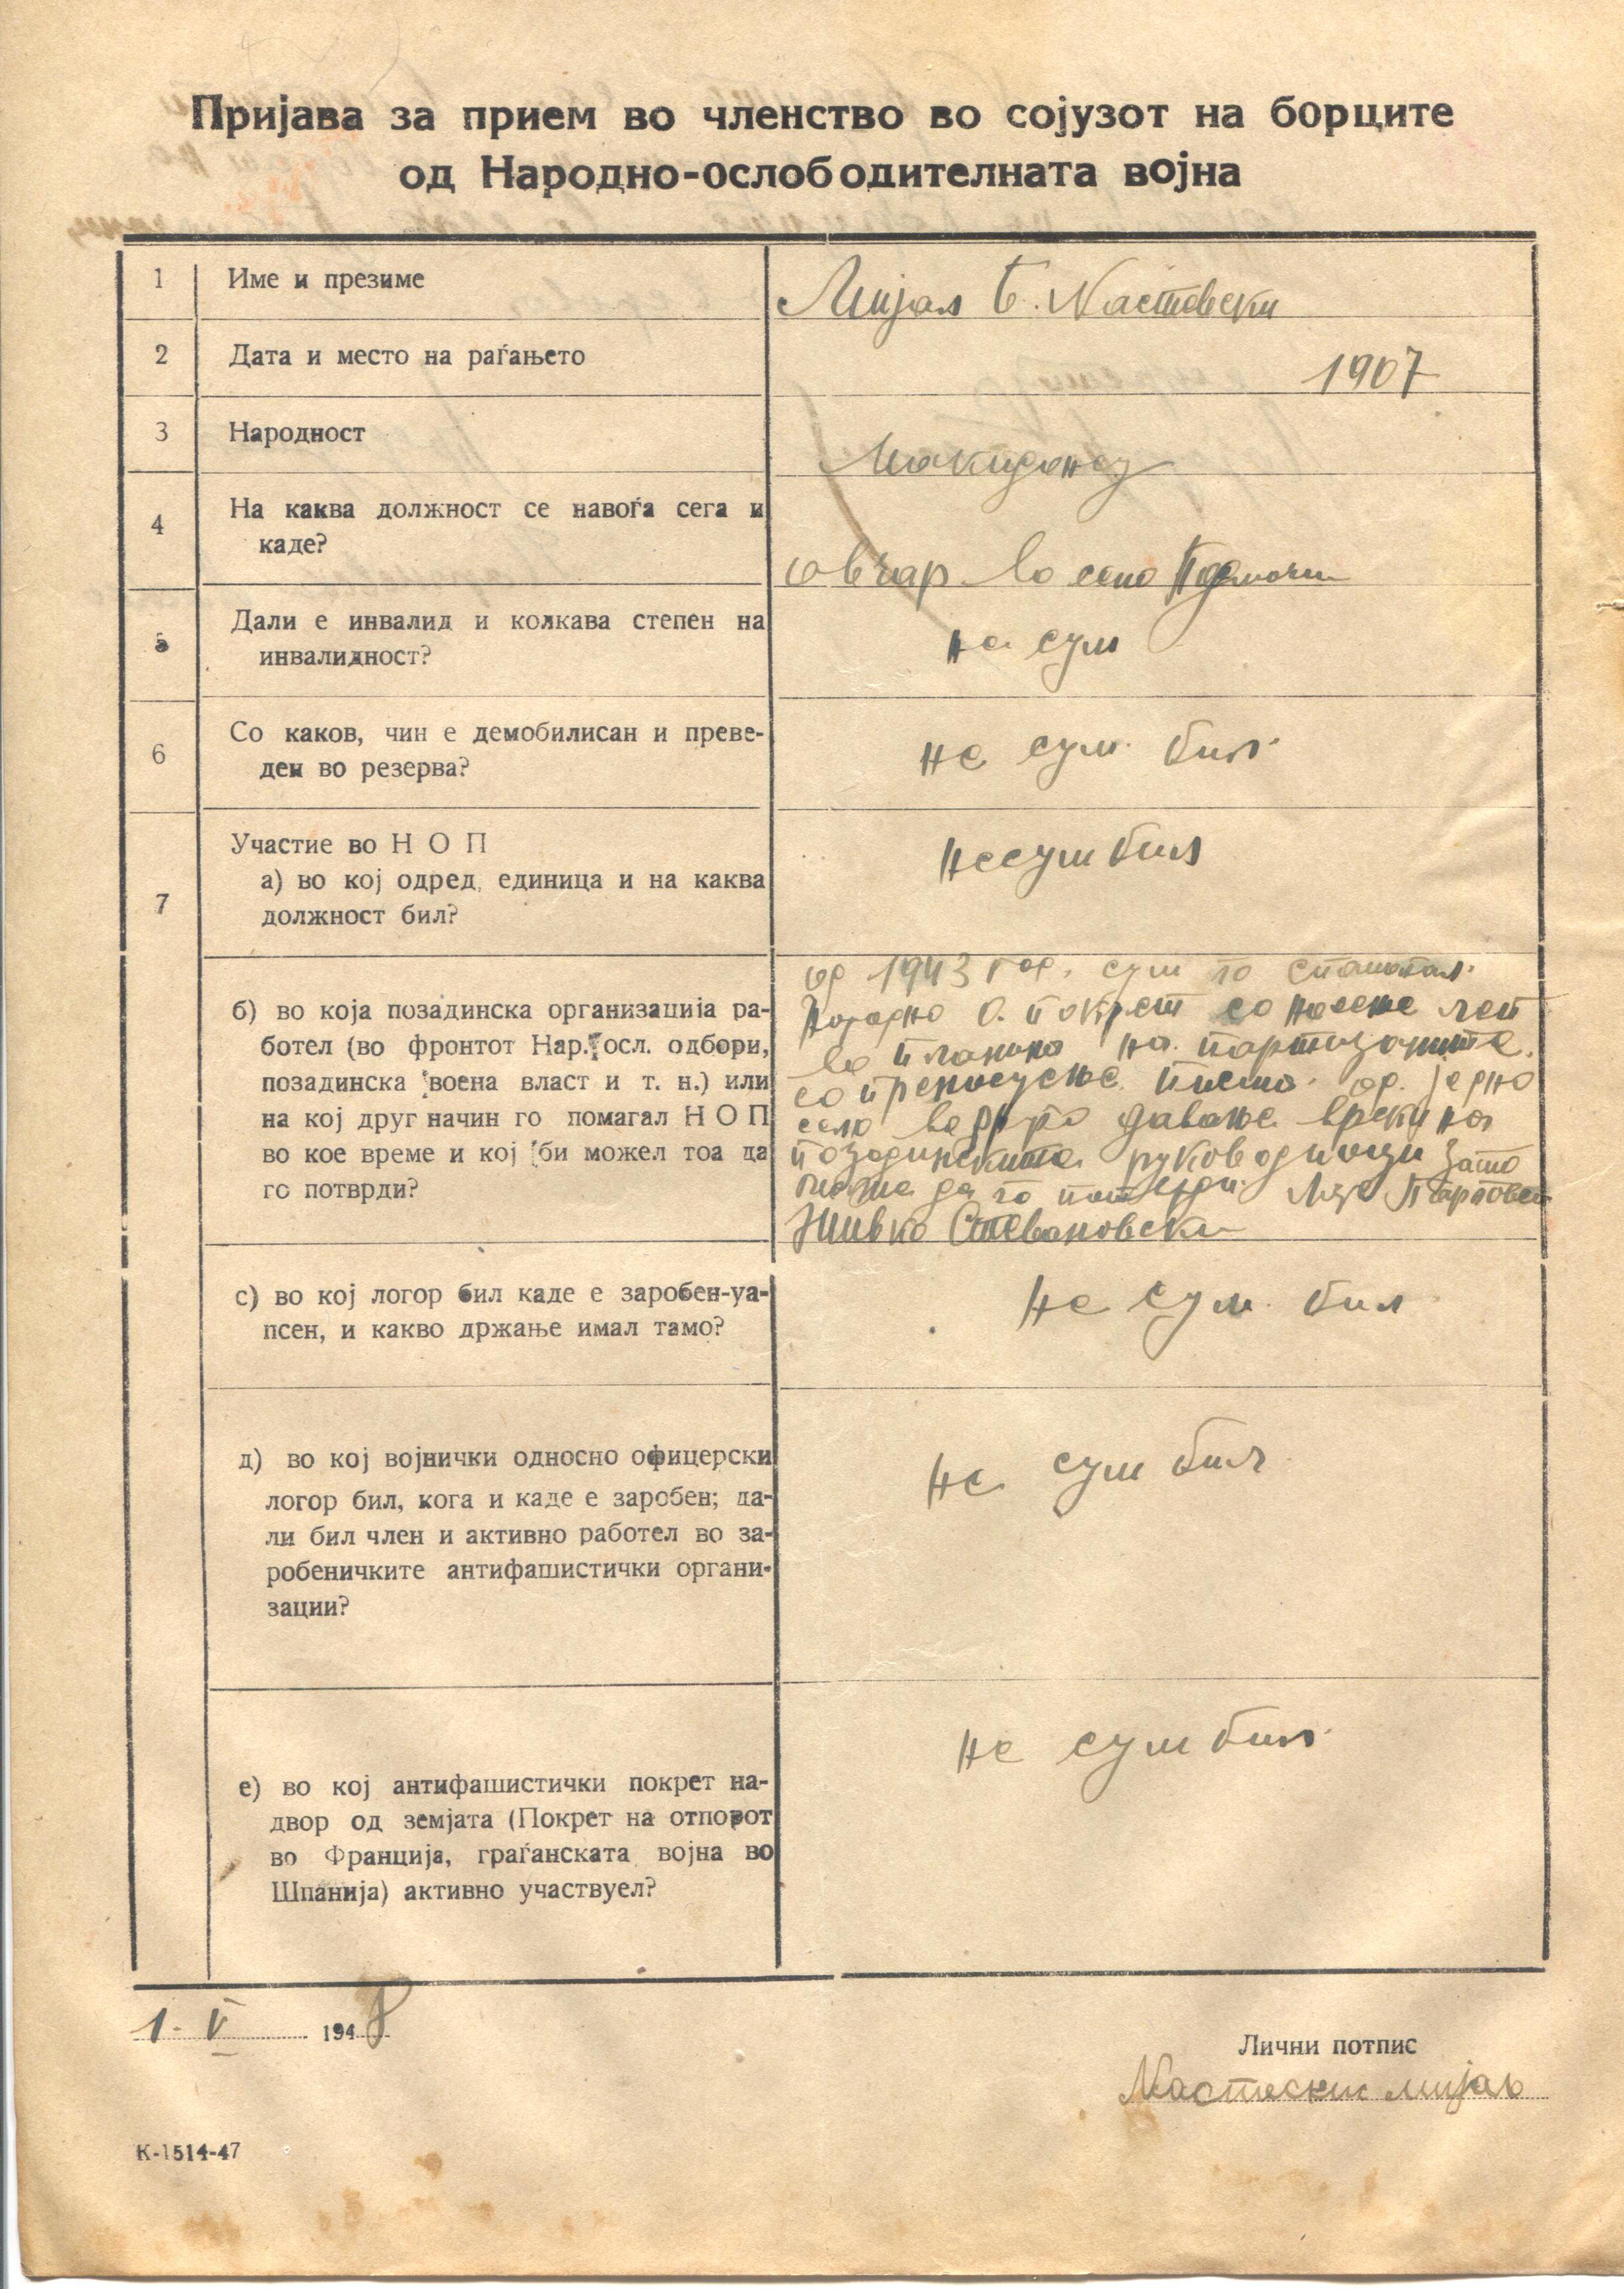 Пријава за прием во членство во сојузот на борците
од Народно-ослободителната војна
1 Име и презиме Мијал Б. Настовски
2 Дата и место на раѓањето 1907
3 Народност Макидонец
4 На каква должност се навоѓа сега и
каде?
овчар во село Подмочи
5 Дали е инвалид и колкава степен на
инвалидност?
не сум
6 Со каков, чин е демобилисан и преве-
ден во резерва?
не сум бил
7 Участие во Н О П
а) во кој одред, единица и на каква
должност бил?
несум бил
б) во која позадинска организација ра-
ботел (во фронтот Нар. осл. одбори,
позадинска воена власт и т. н.) или
на кој друг начин го помагал Н О П
во кое време и кој би можел тоа да
го потврди?
од 1943 год. сум го
О. покрет со носене леб
во планина на партизаните.
со преносуење писма од једно
село во друго давање врски на
позадинските руководиоци зато
може да го потврди
Живко Стевановски
с) во кој логор бил каде е заробен-уа-
псен, и какво држање имал тамо?
не сум бил
д) во кој војнички односно офицерски
логор бил, кога и каде е заробен; да-
ли бил член и активно работел во за-
робеничките антифашистички органи-
зации?
не сум бил
е) во кој антифашистички покрет на-
двор од земјата (Покрет на отпорот
во Франција, граѓанската војна во
Шпанија) активно участвуел?
не сум бил
1 - V 1948
Лични потпис
Настески мијал
К-1514-47